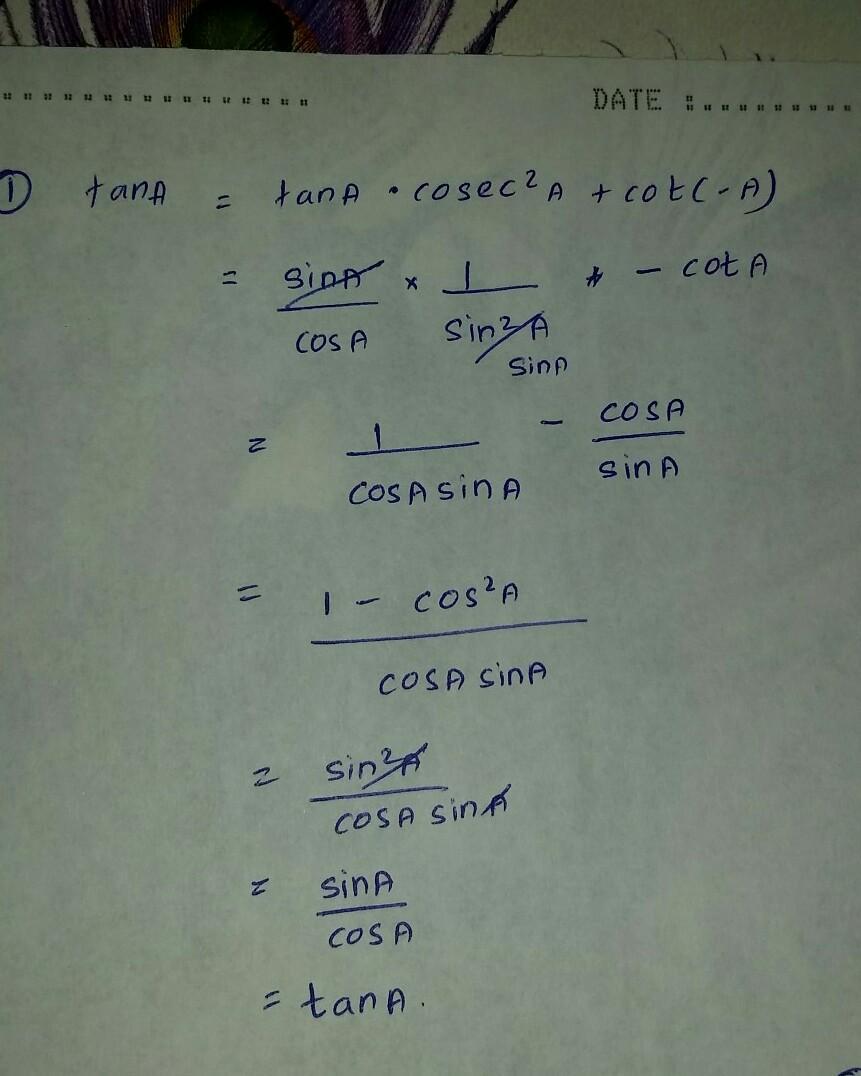 DATE :
① tanA = tanA · cosec²A + cot(-A)
= sinA/cosA × 1/sin²A sinA + - cotA
= 1/cosA sinA - cosA/sinA
= 1 - cos²A/cosA sinA
= sin²A/cosA sinA
= sinA/cosA
= tanA.